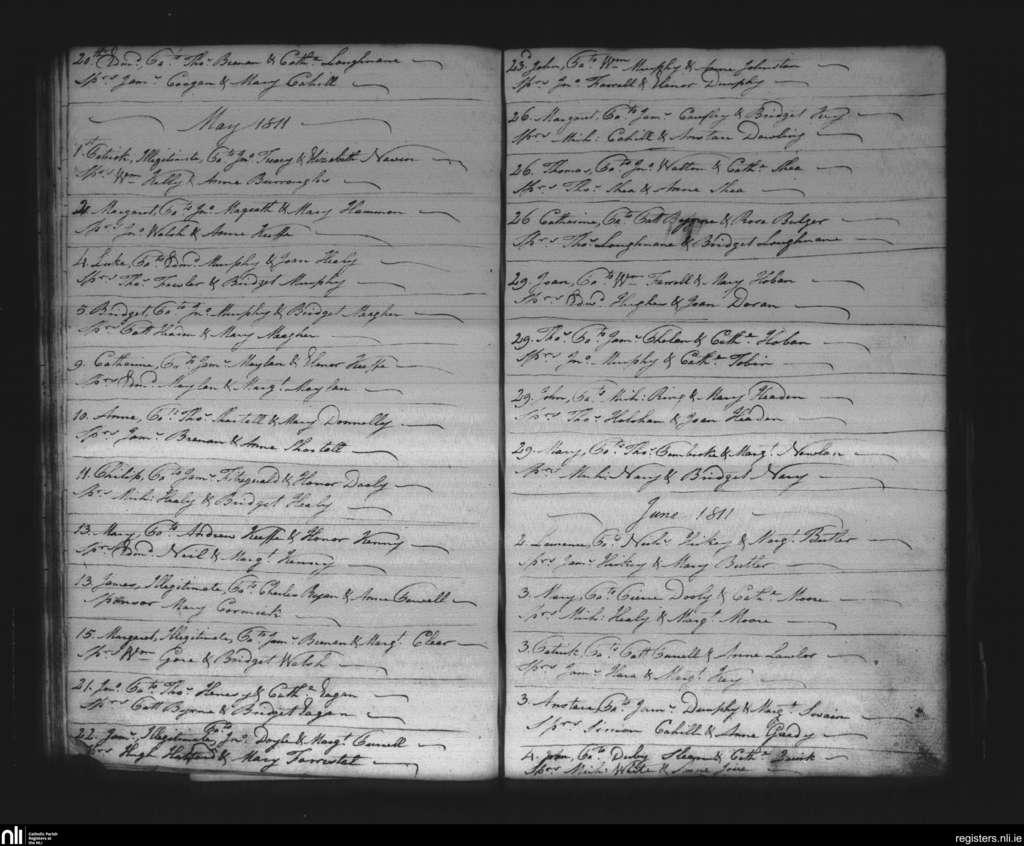 20th Edmd, Bapd to Thos Brenan & Cathe Loughnane
Sprs Jams Coogan & Mary Cahill
May 1811
1st Patrick, Illegitimate, Bapd to Jno & Elizabeth
Sprs Wm Kelly & Anne Burroughs
2. Margaret, Bapd to Jno Magrath & Mary Hammon
Sprs Jno Walsh & Anne Keeffe
4. Luke, Bapd to Edmd Murphy & Joan Healy
Sprs Thos Fowler & Bridget Murphy
5. Bridget, Bapd to Jno Murphy & Bridget Meagher
Sprs Patt Headen & Mary Meagher
9. Catherine, Bapd to Jams Maylan & Elenor Keeffe
Sprs Edmd Maylan & Margt Maylan
10. Anne, Bapd to Thos Shortell & Mary Donnelly
Sprs Jams Brenan & Anne Shortell
11. Philip, Bapd to Jams Fitzgerald & Honor Dooly
Sprs Michl Healy & Bridget Healy
13. Mary, Bapd to Andrew Keeffe & Honor Kenny
Sprs Edmd Neil & Margt Kenny
13. James, Illegitimate, Bapd to Charles Ryan & Anne Farrell
Sponsor Mary Cormick
15. Margaret, Illegitimate, Bapd to Jams Brenan & Margt Clear
Sprs Wm Gore & Bridget Walsh
21. Jno, Bapd to Thos Henesy & Cathe Eagan
Sprs Patt Byrne & Bridget Eagan
22. Jams Illegitimate, Bapd to Jno Doyle & Margt Cunnell
Sprs Hugh & Mary Forrestal
23d John, Bapd to Wm Murphy & Anne Johnston
Sprs Jno Farrell & Elenor Dunphy
26. Margaret, Bapd to Jams & Bridget
Sprs Michl Cahill & Anstace Dowling
26. Thomas, Bapd to Jno Walton & Cathe Shea
Sprs Thos Shea & Anne Shea
26 Catharine, Bapd to Patt Byrne & Rose Bulger
Sprs Thos Loughnane & Bridget Loughnane
29. Joan, Bapd to Wm Farrell & Mary Hoban
Sprs Edmd Hughes & Joan Doran
29. Thos, Bapd to Jams Phelan & Cathe Hoban
Sprs Jno Murphy & Cathe Tobin
29. John, Bapd to Michl Ring & Mary Headen
Sprs Thos Holohan & Joan Headen
29. Mary, Bapd to Thos Pembroke & Margt Nowlan
Sprs Michl Nary & Bridget Nary
June 1811
2. Laurence, Bapd to Nichs Hickey & Margt Butler
Sprs Jams Hickey & Mary Butler
3. Mary, Bapd to Pierce Dooly & Cathe Moore
Sprs Michl Healy & Margt Moore
3. Patrick, Bapd to Patt Cunnell & Anne Lawlor
Sprs Jams Hara & Margt
3. Anstace, Bapd to Jams Dunphy & Margt Swain
Sprs Simon Cahill & Anne Grady
4. John, Bapd to Darby & Cathe Quirk
Sprs Michl White & Anne
nli
Catholic Parish
Registers at
the NLI
registers.nli.ie